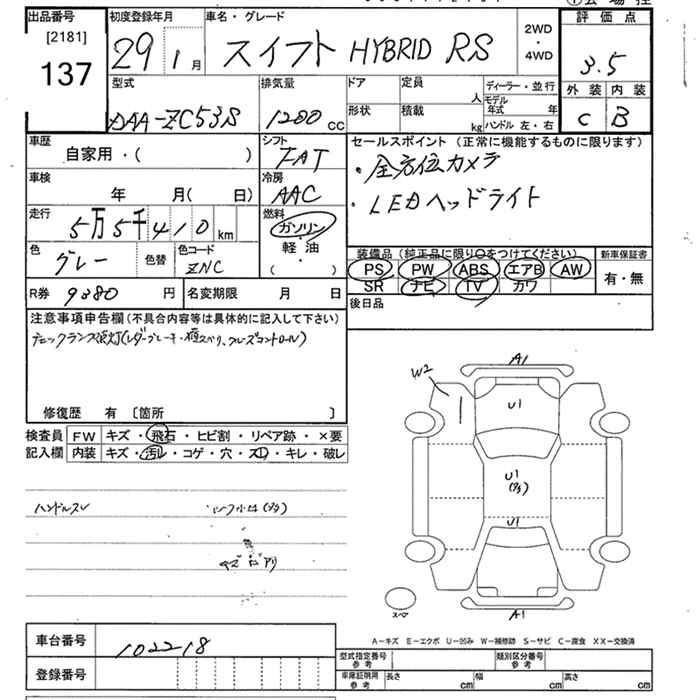 出品番号
[2181]
137
初度登録年月
29 1月
車名・グレード
スイフト HYBRID RS
2WD
・
4WD
評価点
3.5
外装 内装
C B
型式
DAA-ZC53S
排気量
1200 cc
ドア
定員
人
ディーラー・並行
モデル年式 年
形状
積載
kg
ハンドル 左・右
車歴
自家用・( )
シフト
FAT
セールスポイント (正常に機能するものに限ります)
・全方位カメラ
・LEDヘッドライト
車検
年 月( 日)
冷房
AAC
走行
5万5千410km
燃料
ガソリン
軽・油
( )
色
グレー
色替
色コード
ZNC
装備品 (純正品に限り○をつけてください)
PS PW ABS エアB AW
SR ナビ TV カワ
新車保証書
有・無
R券 9380 円
名変期限 月 日
後日品
注意事項申告欄 (不具合内容等は具体的に記入して下さい)
修復歴 有 〔箇所 〕
検査員記入欄
FW キズ・飛石・ヒビ割・リペア跡・×要
内装 キズ・汚レ・コゲ・穴・スレ・キレ・破レ
ハンドルスレ
A1
W2
U1
U1
U1
A1
A-キズ E-エクボ U-凹み W-補修跡 S-サビ C-腐食 XX-交換済
車台番号
102218
登録番号
型式指定番号
参考
類別区分番号
参考
車庫証明用
参考
長さ cm
幅 cm
高さ cm